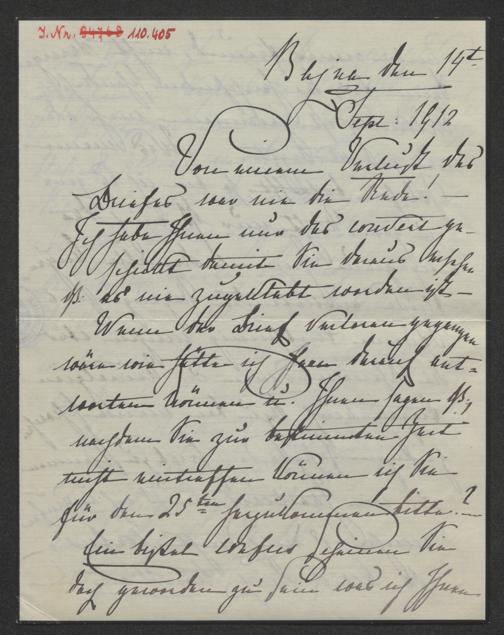 I. Nr. 84768 110.405
Bzjna den 14t
Sept: 1912
Von einem Verlust des
Briefes war nie die Rede! —
Ich habe Ihnen nur das couvert ge-
schickt damit Sie daraus ersehen
es mir zugestellt worden ist —
Wenn der Brief verloren gegangen
wäre wie hätte ich Ihnen darauf ant-
worten können u. Ihnen sagen
nachdem Sie zur bestimmten Zeit
nicht eintreffen können ich Sie
für den 25ten herzukommen bitte? —
Ein bißl confus scheinen Sie
doch geworden zu sein was ich Ihnen